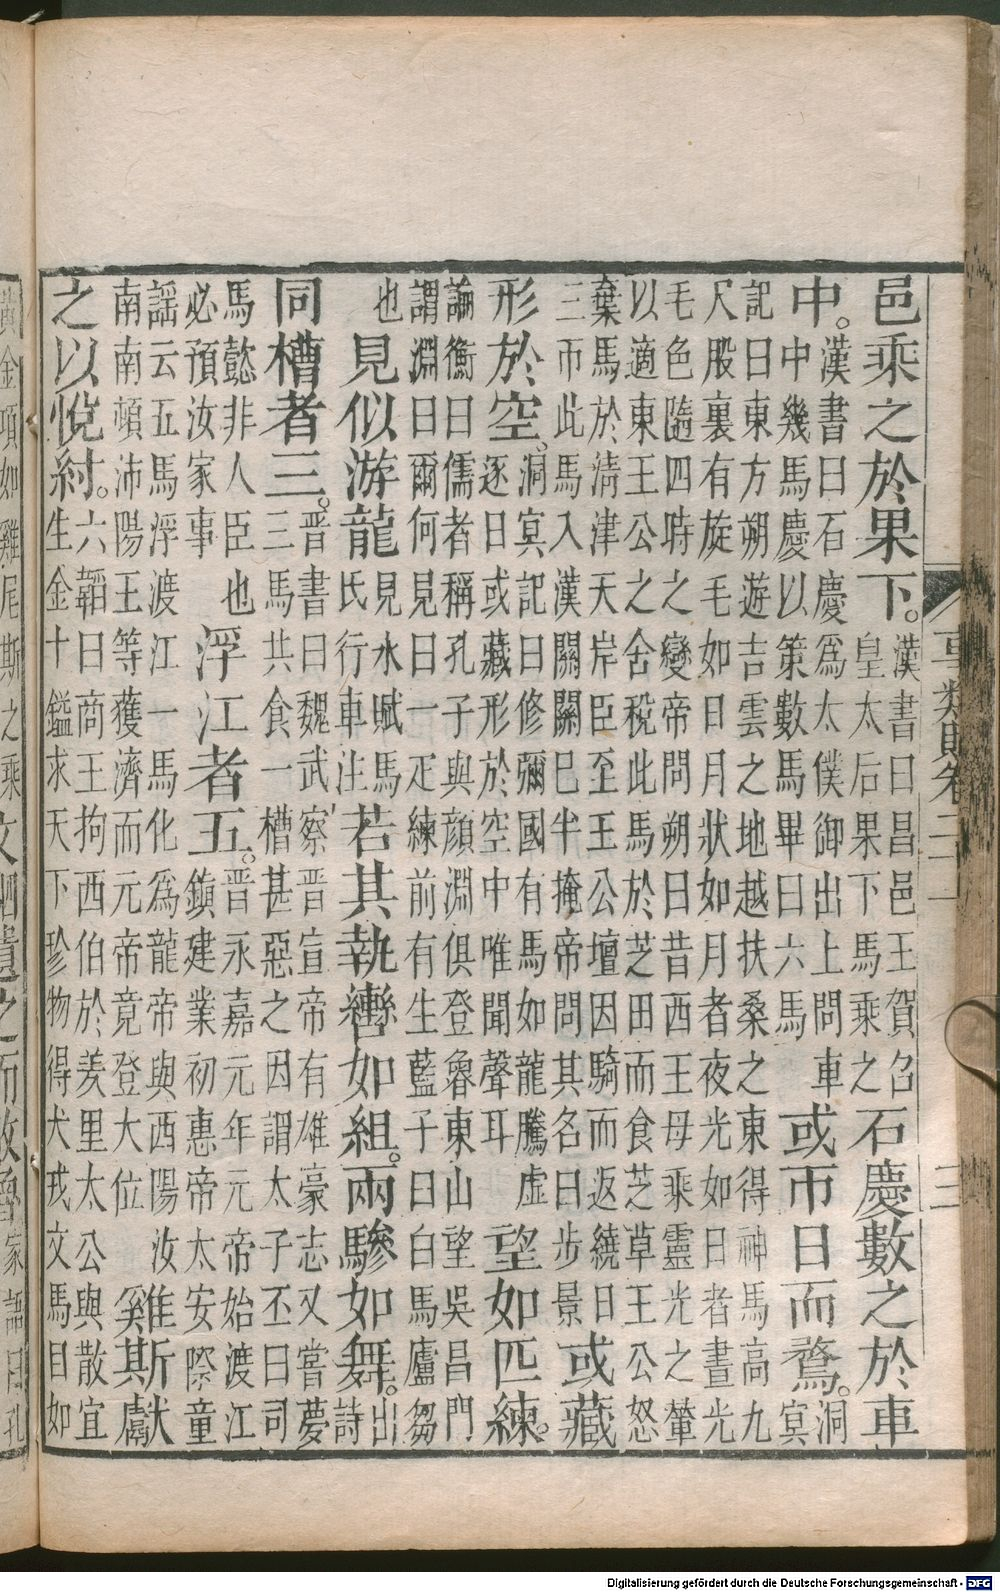 事類賦卷二十一　三
邑乘之於果下。漢書曰昌邑王賀召
皇太后果下馬乘之石慶數之於車
中。漢書曰石慶爲太僕御出上問車
中幾馬慶以策數馬畢曰六馬或帀日而鶩。洞
冥
記曰東方朔遊吉雲之地越扶桑之東得神馬高九
尺股裏有旋毛如日月狀如月者夜光如日者晝光
毛色隨四時之變帝問朔曰昔西王母乘靈光之輦
以適東王公之舍稅此馬於芝田而食芝草王公怒
棄馬於淸津天岸臣至王公壇因騎而返繞日
三帀此馬入漢關關巳半掩帝問其名曰步景或藏
形於空。洞冥記曰修彌國有馬如龍騰虛
逐日或藏形於空中唯聞聲耳望如匹練。
論衡曰儒者稱孔子與顔淵俱登魯東山望吳昌門
謂淵曰爾何見曰一疋練前有生藍子曰白馬盧芻
也見似游龍見水賦馬
氏行車注若其執轡如組。兩驂如舞。出
詩
同槽者三。晉書曰魏武察晉宣帝有雄豪志又嘗夢
三馬共食一槽甚惡之因謂太子丕曰司
馬懿非人臣也
必預汝家事浮江者五。晉永嘉元年元帝始渡江
鎮建業初惠帝太安際童
謠云五馬浮渡江一馬化爲龍帝與西陽汝
南南頓沛陽王等獲濟而元帝竟登大位奚斯獻
之以悅紂。六韜曰商王拘西伯於羑里太公與散宜
生金十鎰求天下珍物得犬戎文馬目如
黃金項如雞尾斯之乘
Digitalisierung gefördert durch die Deutsche Forschungsgemeinschaft - DFG